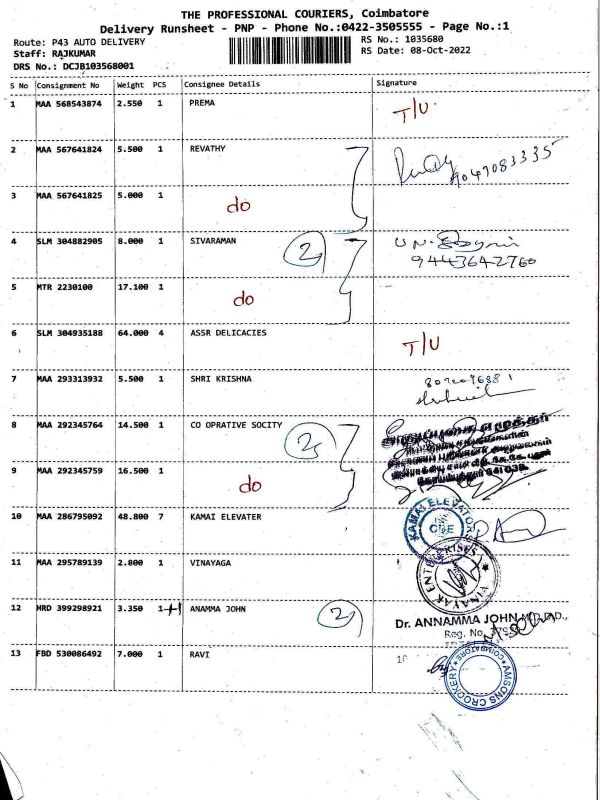 THE PROFESSIONAL COURIERS, Coimbatore
Delivery Runsheet - PNP - Phone No.:0422-3505555 - Page No.:1
Route: P43 AUTO DELIVERY
RS No.: 1035680
Staff: RAJKUMAR
RS Date: 08-Oct-2022
DRS No.: DCJB103568001
S No Consignment No Weight PCS Consignee Details Signature
1 MAA 568543874 2.550 1 PREMA T/U
2 MAA 567641824 5.500 1 REVATHY 9047083335
3 MAA 567641825 5.000 1 do
4 SLM 304882905 8.000 1 SIVARAMAN 2 9443642760
5 MTR 2230100 17.100 1 do
6 SLM 304935188 64.000 4 ASSR DELICACIES T/U
7 MAA 293313932 5.500 1 SHRI KRISHNA
8 MAA 292345764 14.500 1 CO OPRATIVE SOCITY 2
9 MAA 292345759 16.500 1 do
10 MAA 286795092 48.800 7 KAMAI ELEVATER KAMAI ELEVATORS
11 MAA 295789139 2.800 1 VINAYAGA VINAYAK ENTERPRISES
12 HRD 399298921 3.350 1+1 ANAMMA JOHN 2 Dr. ANNAMMA JOHN
Reg. No
13 FBD 530086492 7.000 1 RAVI AMSONS CROCKERY COIMBATORE